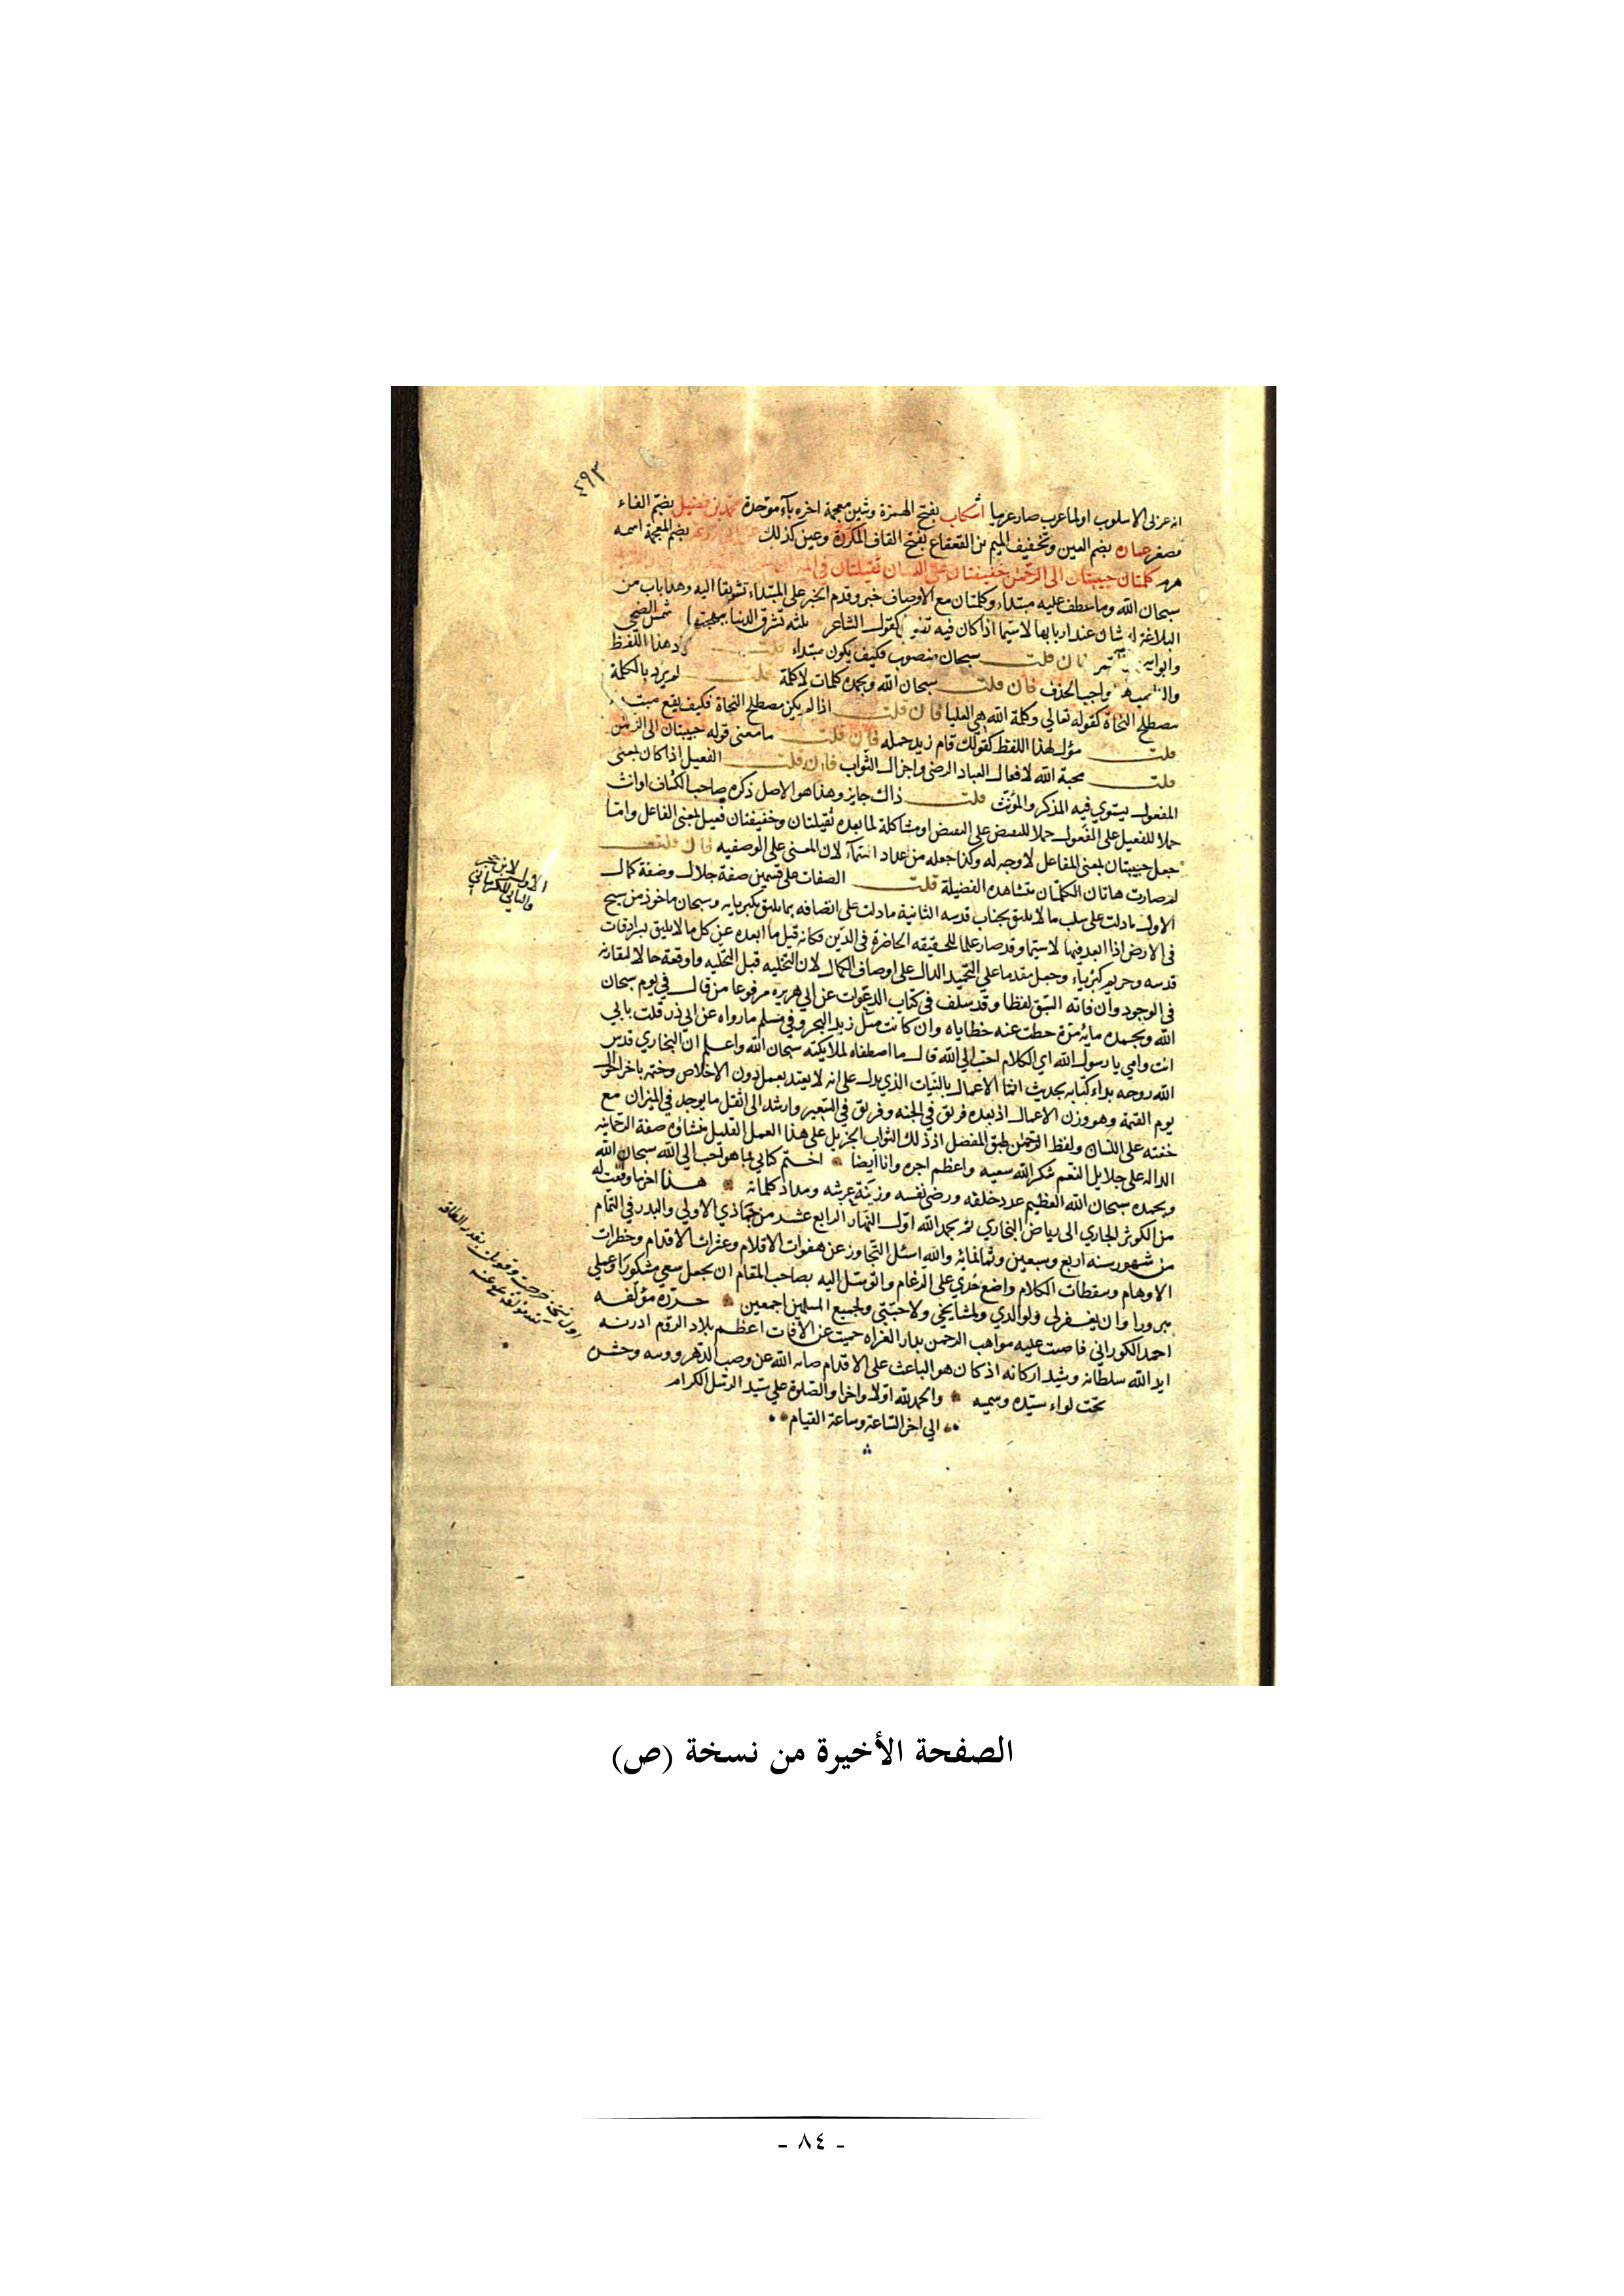 ٤٩٣
انه عربي الاسلوب او لما عرب صار عربيا اشكاب بفتح الهمزة وشين معجمة اخره باء موحدة محمد بن فضيل بضم الفاء
مصغر عمارة بضم العين وتخفيف الميم بن القعقاع بفتح القاف المكررة وعين كذلك عن ابي زرعة بضم المعجمة اسمه
هرم كلمتان حبيبتان الى الرحمن خفيفتان على اللسان ثقيلتان في
سبحان الله وما عطف عليه مبتداء وكلمتان مع الاوصاف خبر وقدم الخبر على المبتداء تشويقا اليه وهذا باب من
البلاغة له شان عند اربابها لا سيما اذا كان فيه كقول الشاعر ثلثة تشرق الدنيا ببهجتها شمس الضحى
وابو فان قلت سبحان منصوب فكيف يكون مبتداء قلت هذا اللفظ
واجب الحذف فان قلت سبحان الله وبحمده كلمات لا كلمة قلت لم يرد بالكلمة
مصطلح النحاة كقوله تعالى وكلمة الله هي العليا فان قلت اذا لم يكن مصطلح النحاة فكيف يقع مبتداء
قلت مؤل بهذا اللفظ كقولك قام زيد جمله فان قلت ما معنى قوله حبيبتان الى الرحمن
قلت محبة الله لافعال العباد الرضى واجزال الثواب فان قلت الفعيل اذا كان بمعنى
المفعول يستوي فيه المذكر والمؤنث قلت ذاك جايز وهذا هو الاصل ذكره صاحب الكشاف او انث
حملا للفعيل على المفعول حملا للبعض على البعض او مشاكلة لما بعده ثقيلتان وخفيفتان فعيل بمعنى الفاعل واما
جعل حبيبتان بمعنى الفاعل لا وجه له وكذا جعله من عداد اسماء لان المعنى على الوصفيه فان قلت
لم صارت هاتان الكلمتان بهذه الفضيلة قلت الصفات على قسمين صفة جلال وصفة كمال
الاول ما دلت على سلب ما لا يليق بجناب قدسه الثانية ما دلت على اتصافه بما يليق بكبريايه وسبحان ماخوذ من سبح
في الارض اذا ابعد فيها لا سيما وقد صار علما للحقيقه الحاضرة في الذهن فكانه قيل ما ابعده عن كل ما لا يليق بسرادقات
قدسه وحريم كبرياء وجعل مقدما على التحميد الدال على اوصاف الكمال لان التخليه قبل التحليه واوقعه حالا لمقارنه
في الوجود وان فاته السبق لفظا وقد سلف في كتاب الدعوات عن ابي هريره مرفوعا من قال في يوم سبحان
الله وبحمده مايه مرة حطت عنه خطاياه وان كانت مثل زبد البحر وفي مسلم ما رواه عن ابي ذر قلت بابي
انت وامي يا رسول الله اي الكلام احب الى الله قال ما اصطفاه لملايكته سبحان الله واعلم ان البخاري قدس
الله روحه بداء كتابه بحديث انما الاعمال بالنيات الذي يدل على انه لا يعتد بعمل دون الاخلاص وختم باخر احوال
يوم القيمة وهو وزن الاعمال اذ بعده فريق في الجنه وفريق في السعير وارشد الى اثقل ما يوجد في الميزان مع
خفته على اللسان ولفظ الرحمن طبق المفصل اذ ذلك الثواب الجزيل على هذا العمل القليل منشاؤه صفة الرحمانيه
الداله على جلايل النعم شكر الله سعيه واعظم اجره وانا ايضا اختم كتابي بما هو احب الى الله سبحان الله
وبحمده سبحان الله العظيم عدد خلقه ورضى نفسه وزينة عرشه ومداد كلماته هذا اخر ما وقعت له
من الكوثر الجاري الى رياض البخاري تم بحمد الله اول النهار الرابع عشر من جماذي الاولى والبدر في التمام
من شهور سنه اربع وسبعين وثمانمائة والله اسئل التجاوز عن هفوات الاقلام وعثرات الاقدام وخطرات
الاوهام وسقطات الكلام واضع خدي على الرغام والتوسل اليه بصاحب المقام ان يجعل سعي مشكورا وعملي
مبرورا وان يغفر لي ولوالدي ولمشايخي ولاحبتي ولجميع المسلمين اجمعين حرره مؤلفه
احمد الكوراني فاضت عليه مواهب الرحمن بدار الغزاه حميت عن الآفات اعظم بلاد الروم ادرنه
ايد الله سلطانه وشيد اركانه اذ كان هو الباعث على الاقدام صانه الله عن وصب الدهر وحشر
تحت لواء سيده وسميه والحمد لله اولا واخرا والصلوة على سيد الرسل الكرام
الى اخر الساعة وساعة القيام
الاول لابن حجر
والثاني للكرماني
اول نسخة خرجت وقوبلت بقدر الطاقه
مؤلفه عفي عنه
الصفحة الأخيرة من نسخة (ص)
- ٨٤ -